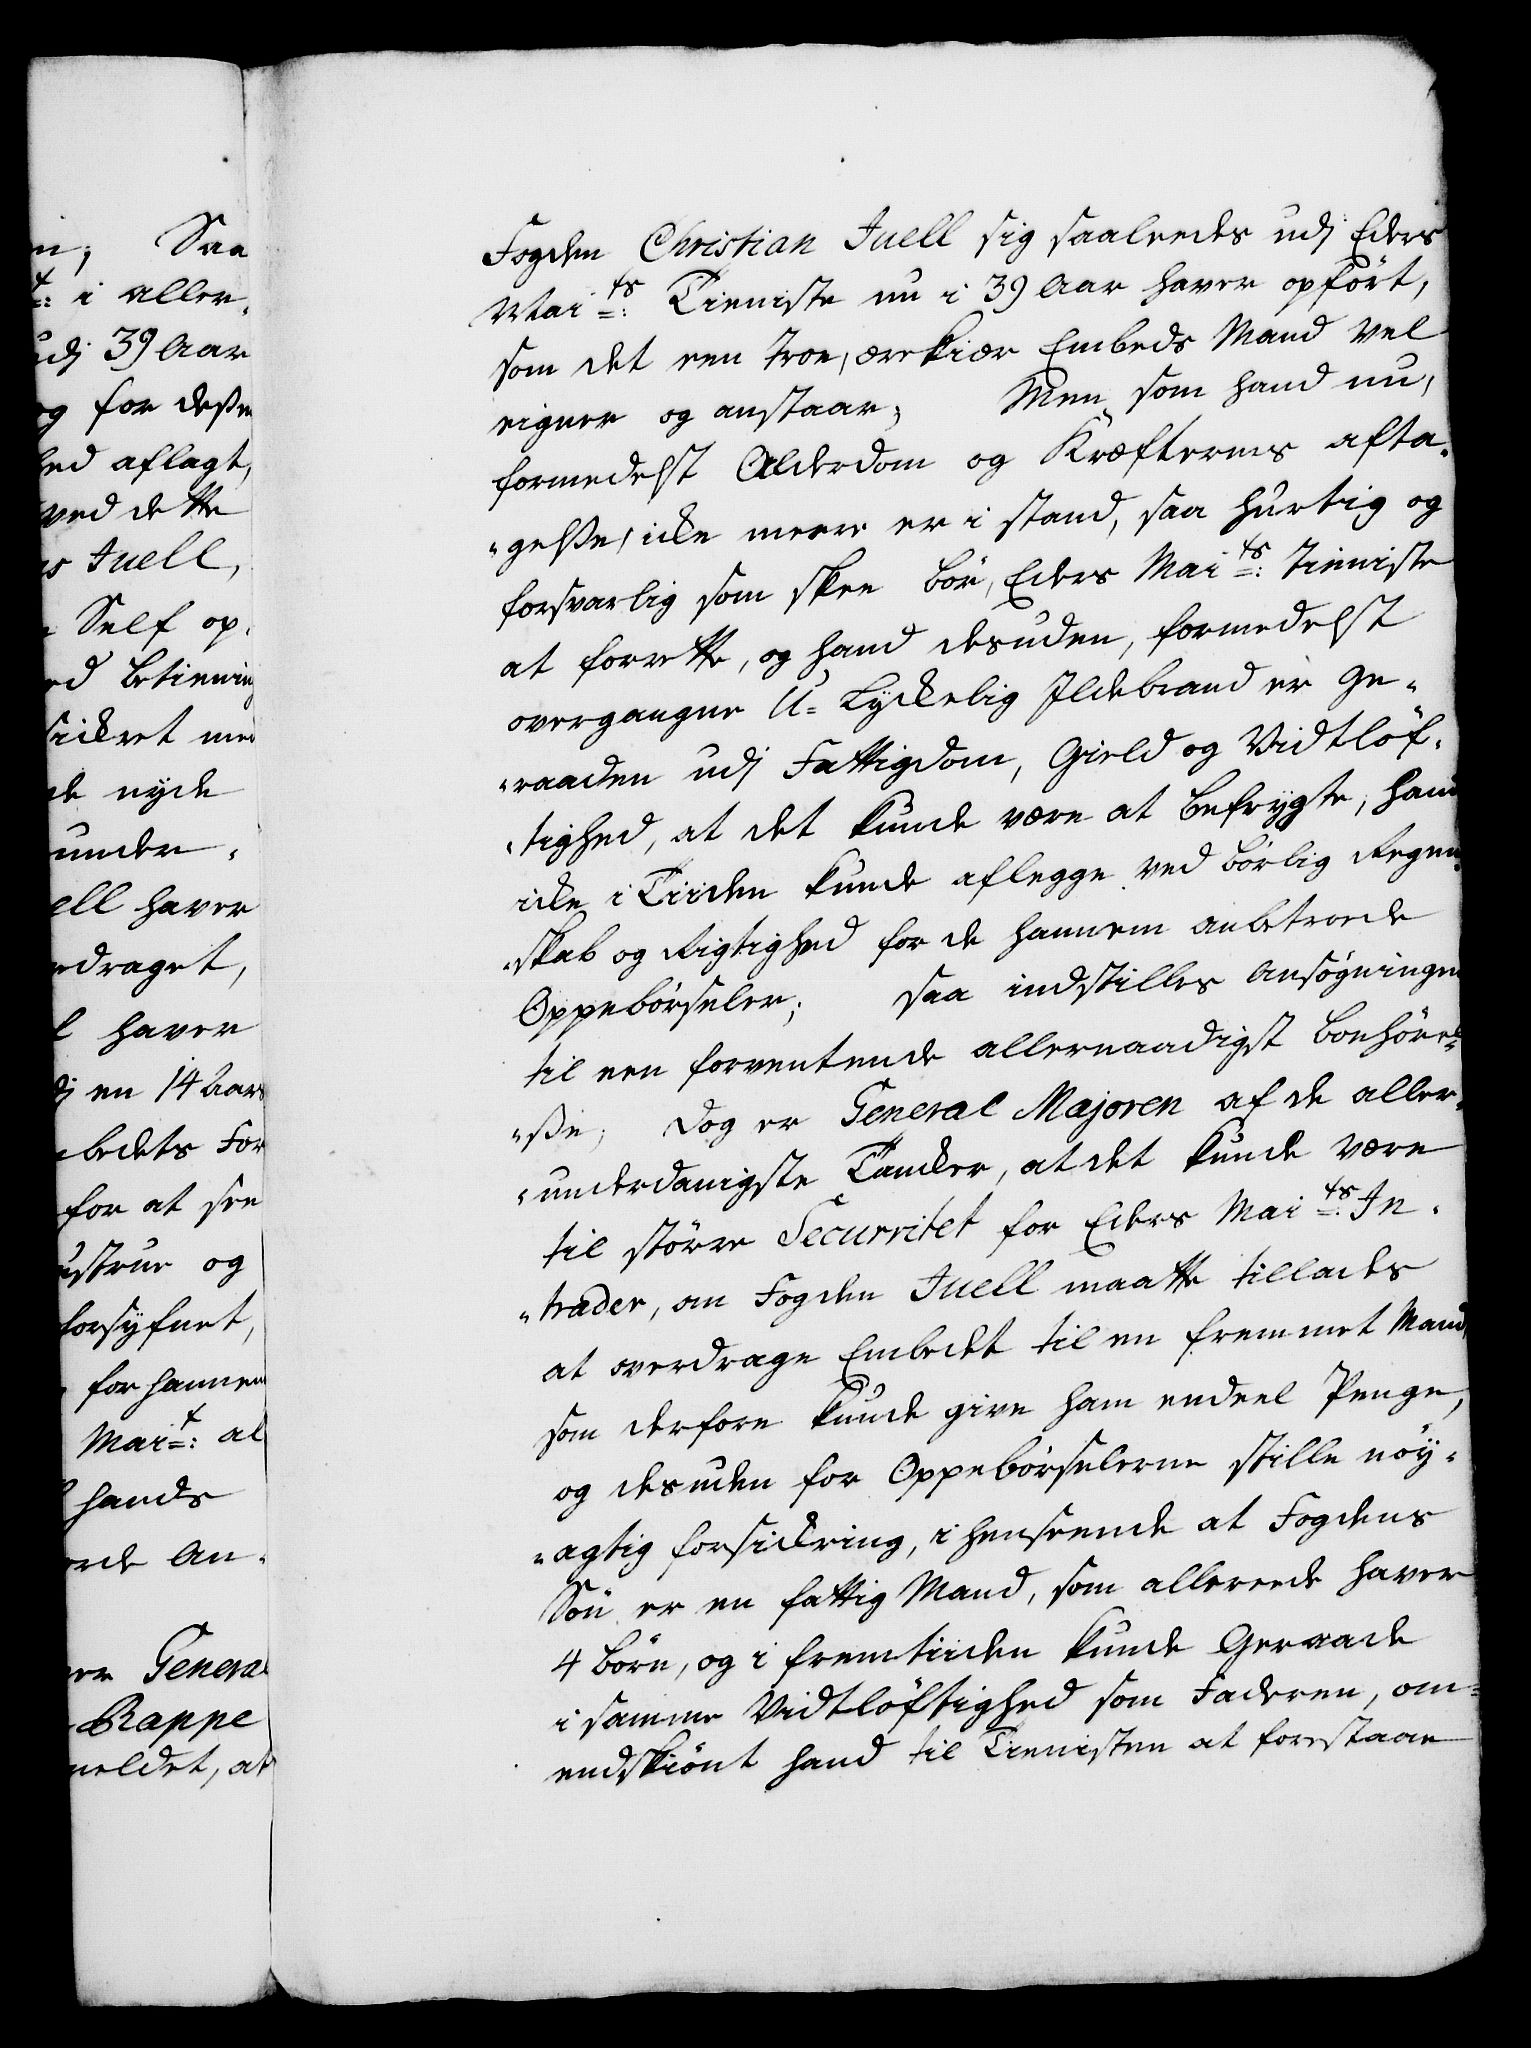 n; Saa
t: i aller¸
udj 39 Aar
og for deßen
hed aflagt,
ved dette
rs Juell,
Self op¸
ed Betiening
sickret med
de nyde
under¸
ell haver
rdraget,
l haver
dj en 14 Aars
bedets For
for at see
ustrue og
forsyfnet,
for hannem
Mait: al
hands
rde An¸
er General
Rappe
meldet, at
Fogden Christian Juell sig saaleedes udj Eders
Maits: Tieniste nu i 39 Aar haver opført,
som det een Troe, ærekiær Embeds Mand vel
eigner og anstaar; Men som hand nu,
formedelst Alderdom og Kræfternes afta¸
¸gelße, icke meere er i stand, saa hurtig og
forsvarlig som skee bör, Eders Maits: Tieniste
at forrette, og hand desuden, formedelst
overgangne U-Lyckelig Ildebrand er Ge¸
¸raaden udj Fattigdom, Gield og Vidtløf¸
¸tighed, at det kunde være at befrygte, hand
icke i Tiiden kunde aflegge ved børlig Regen¸
¸skab og Rigtighed for de hannem anbetroede
Oppebørseler; saa indstilles Ansøgningen
til een forventende allernaadigst bønhörel¸
¸ße; Dog er General Majoren af de aller¸
¸underdanigste Tancker, at det kunde være
til större Securritet for Eders Maits: In¸
¸trader, om Fogden Juell maatte tillades
at overdrage Embedet til en fremmet Mand,
som derfore kunde give ham endeel Penge,
og desuden for Oppebörselerne stille nöy¸
¸agtig forsickring, i henseende at Fogdens
Sön er en fattig Mand, som allereede haver
4 börn, og i fremtiiden kunde Geraade
i samme Vidtlöftighed som Faderen, om¸
endskiönt hand til Tienisten at forestaae